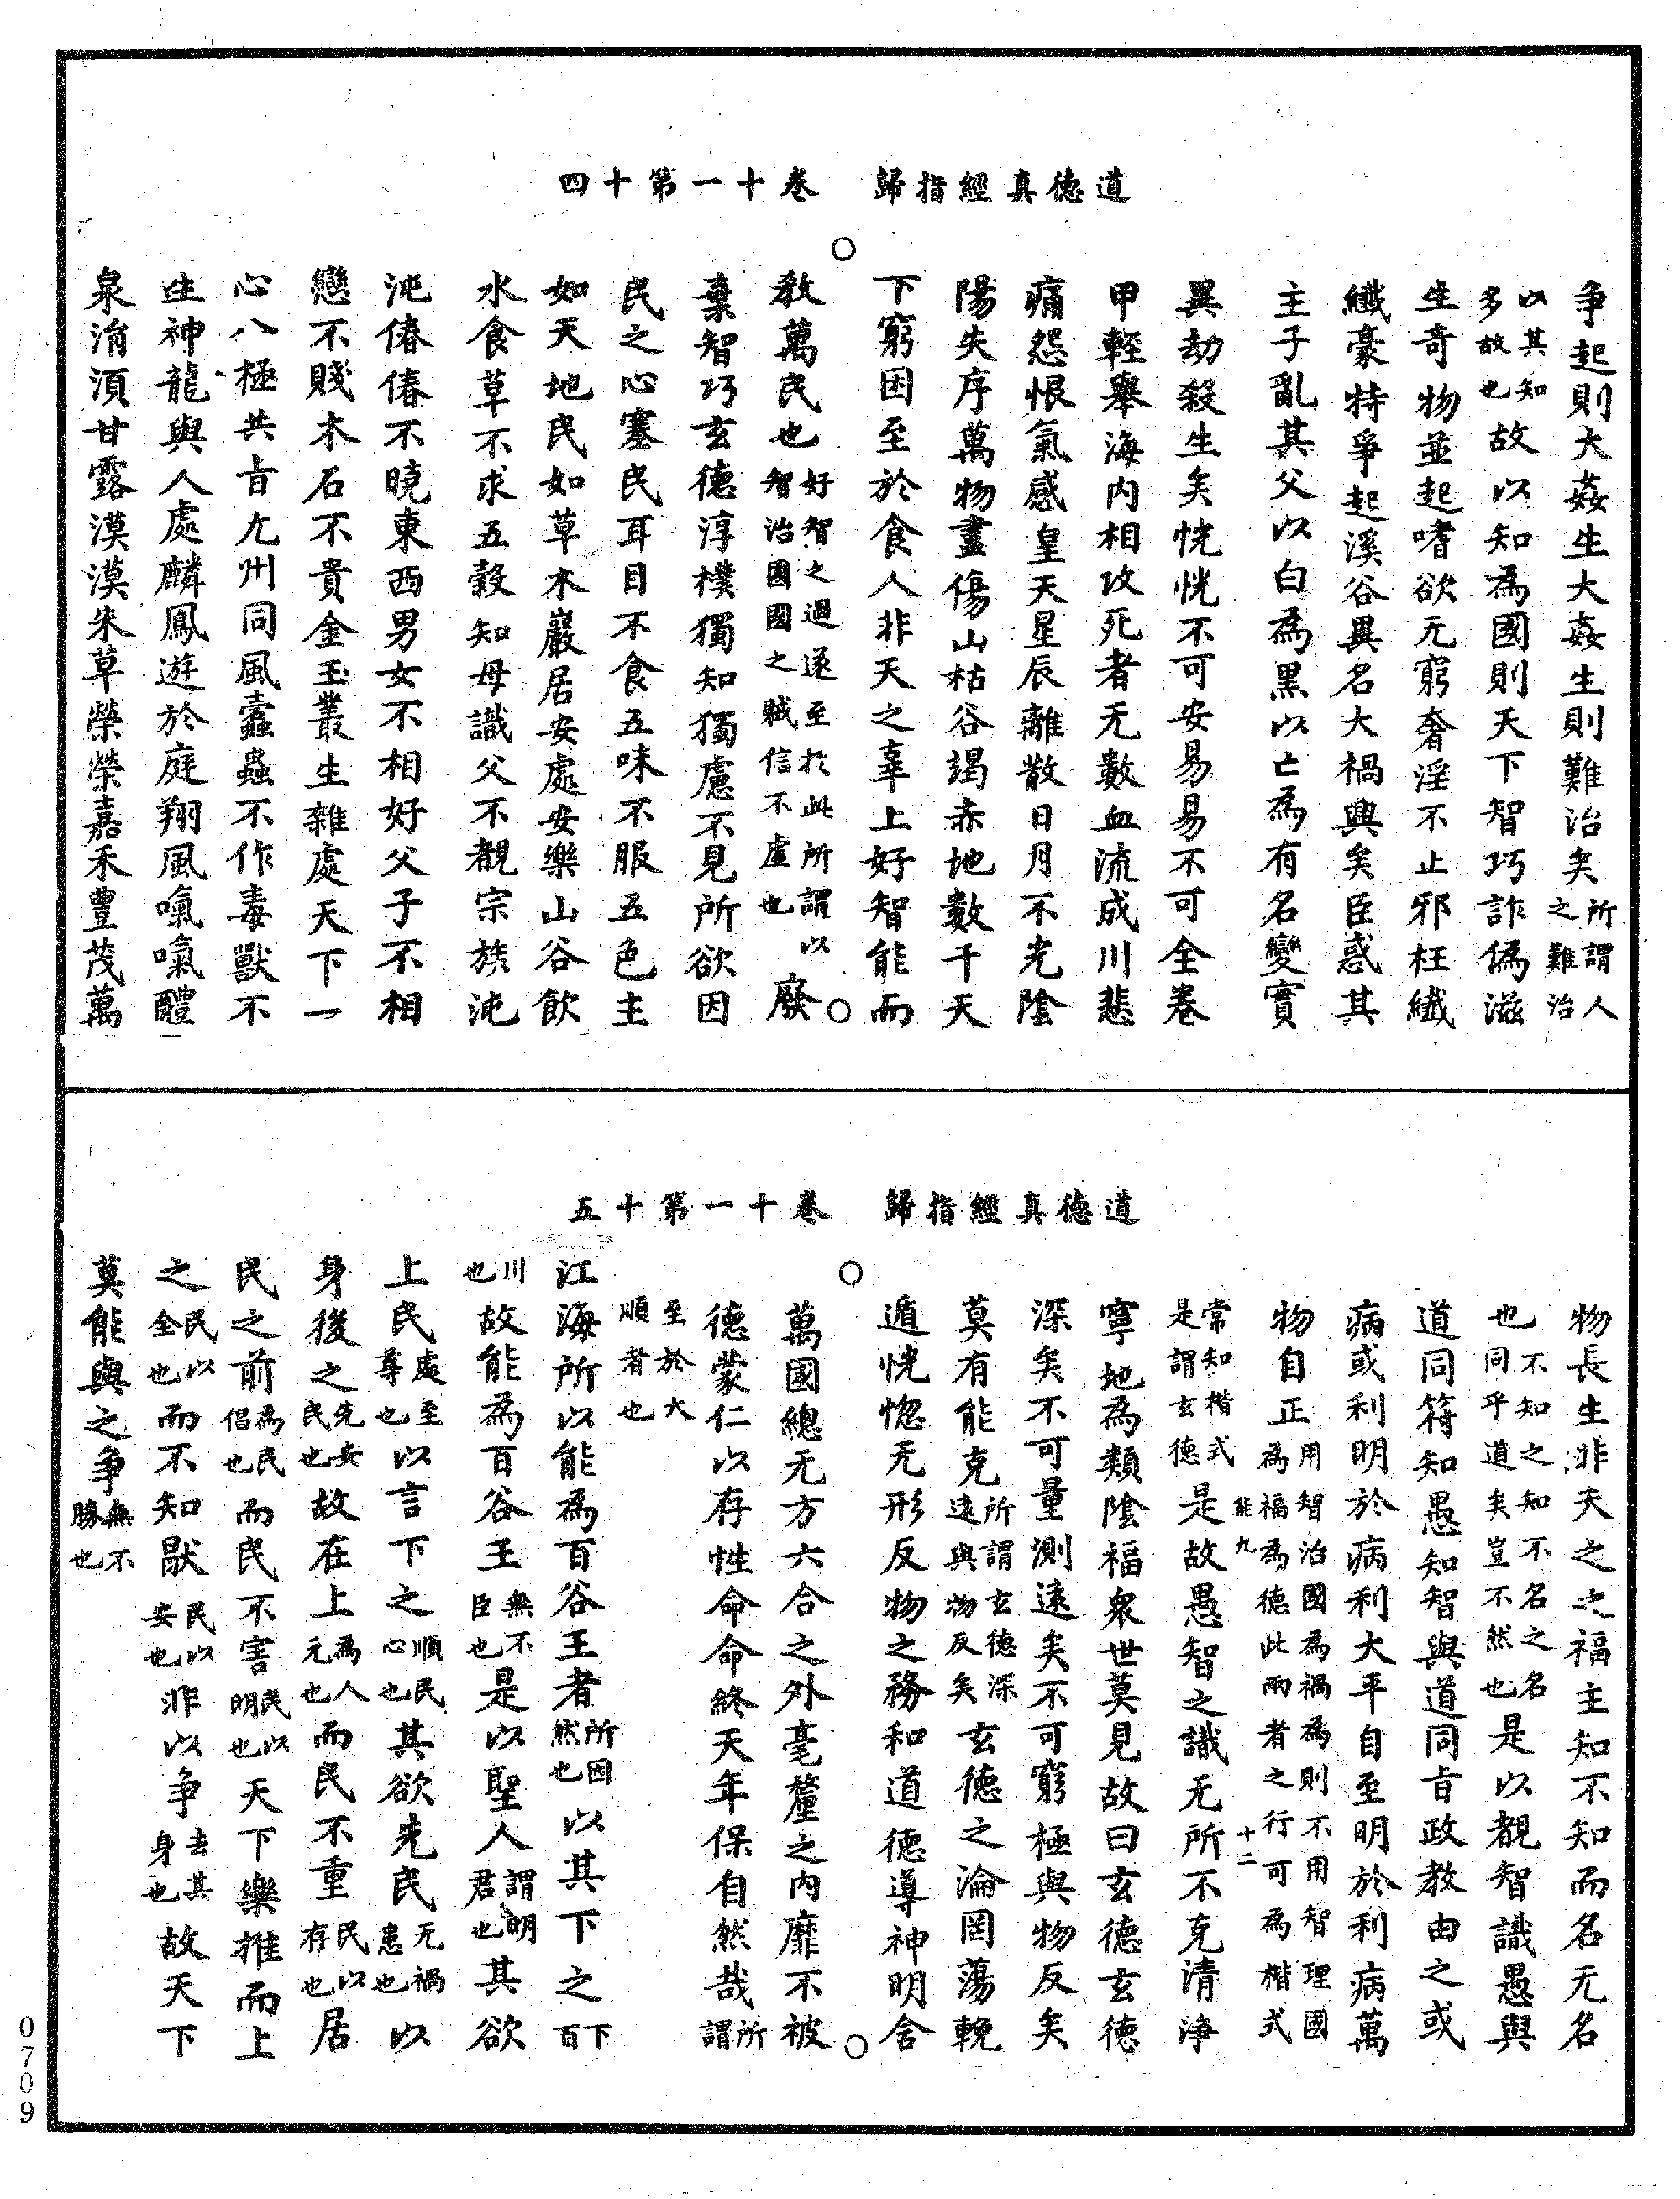 道德真經指歸　卷十一第十四
争起則大姦生大姦生則難治矣所謂人之難治
以其知多故也故以知為國則天下智巧詐偽滋
生奇物並起嗜欲无窮奢淫不止邪枉纖
纖豪特爭起溪谷異名大禍興矣臣惑其
主子亂其父以白為黑以亡為有名變實
異劫殺生矣恍恍不可安易易不可全卷
甲輕舉海内相攻死者无數血流成川悲
痛怨恨氣感皇天星辰離散日月不光陰
陽失序萬物盡傷山枯谷竭赤地數千天
下窮困至於食人非天之辜上好智能而
教萬民也好智之過遂至於此所謂以智治國國之賊信不虛也廢
棄智巧玄德淳樸獨知獨慮不見所欲因
民之心塞民耳目不食五味不服五色主
如天地民如草木巖居安處安樂山谷飲
水食草不求五穀知母識父不覩宗族沌
沌偆偆不曉東西男女不相好父子不相
戀不賤木石不貴金玉叢生雜處天下一
心八極共旨九州同風蠹蟲不作毒獸不
生神龍與人處麟鳳遊於庭翔風嗈嗈醴
泉涓湏甘露漠漠朱草榮榮嘉禾豐茂萬
道德真經指歸　卷十一第十五
物長生非天之之福主知不知而名无名
也不知之知不名之名也同乎道矣豈不然也是以覩智識愚與
道同符知愚知智與道同旨政教由之或
病或利明於病利大平自至明於利病萬
物自正用智治國為禍為則不用智理國為福為德此兩者之行可為楷式能九十二
常知楷式是謂玄德是故愚智之識无所不克清淨
寧地為類陰福衆世莫見故曰玄德玄德
深矣不可量測遠矣不可窮極與物反矣
莫有能克所謂玄德深遠與物反矣玄德之淪罔蕩輓
遁恍惚无形反物之務和道德導神明含
萬國總无方六合之外毫釐之内靡不被
德蒙仁以存性命命終天年保自然哉所謂
至於大順者也
江海所以能為百谷王者所因然也以其下之下百
川也故能為百谷王無不臣也是以聖人謂明君也其欲
上民處至尊也以言下之順民心也其欲先民无禍患也以
身後之先安民也故在上為人元也而民不重民以存也居
民之前為民倡也而民不害民以明也天下樂推而上
之民以全也而不知猒民以安也非以争去其身也故天下
莫能與之争無不勝也
0709